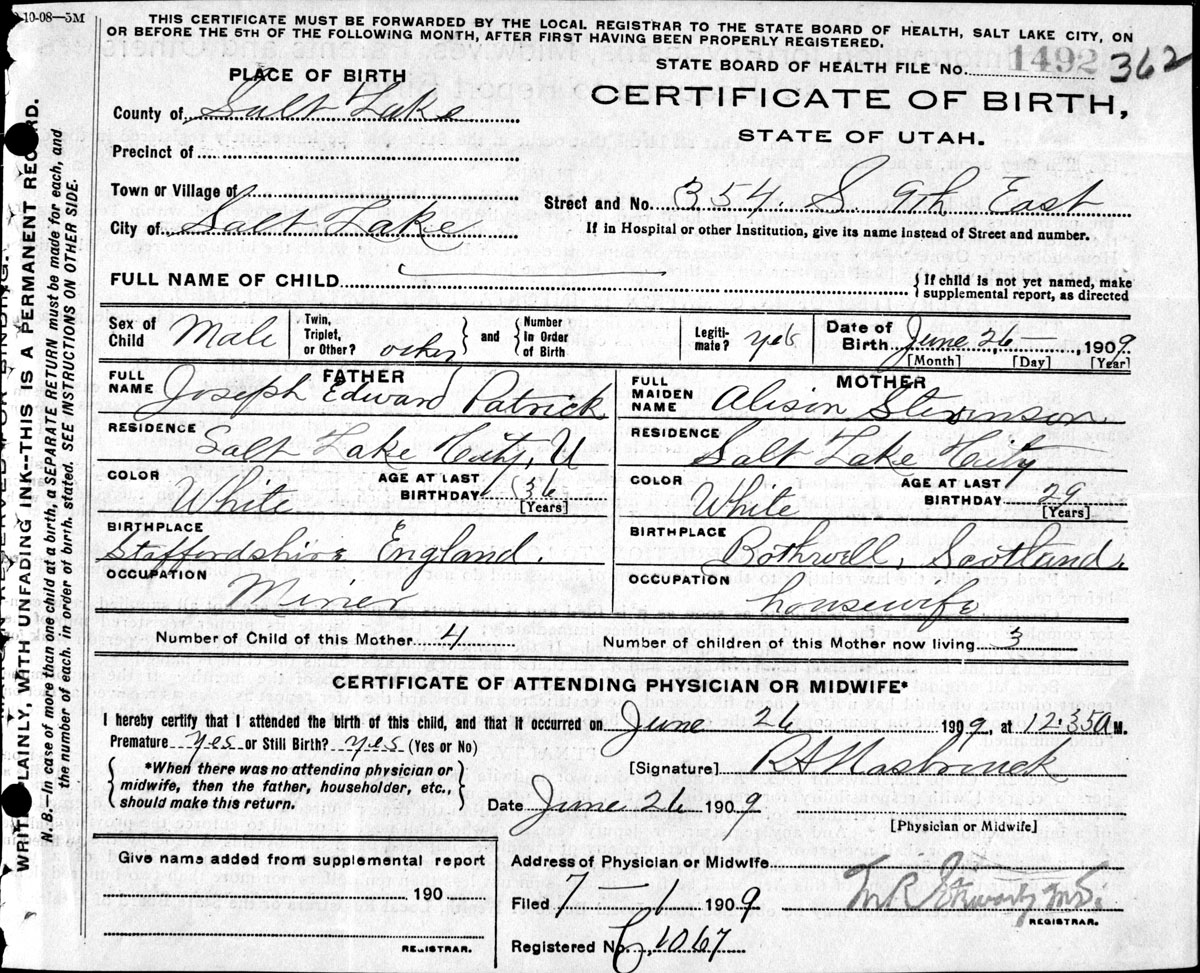 10-08—5M
THIS CERTIFICATE MUST BE FORWARDED BY THE LOCAL REGISTRAR TO THE STATE BOARD OF HEALTH, SALT LAKE CITY, ON
OR BEFORE THE 5TH OF THE FOLLOWING MONTH, AFTER FIRST HAVING BEEN PROPERLY REGISTERED.
STATE BOARD OF HEALTH FILE No. 1492 362
PLACE OF BIRTH
CERTIFICATE OF BIRTH,
STATE OF UTAH.
County of Salt Lake
Precinct of
Town or Village of
Street and No. 354 S 9th East
City of Salt Lake
If in Hospital or other Institution, give its name instead of Street and number.
FULL NAME OF CHILD
If child is not yet named, make
supplemental report, as directed
Sex of Child Male Twin, Triplet, or Other? other and Number In Order of Birth Legitimate? yes Date of Birth June 26, 1909
[Month] [Day] [Year]
FATHER
MOTHER
FULL NAME Joseph Edward Patrick
FULL MAIDEN NAME Alison Stevinson
RESIDENCE Salt Lake City, U
RESIDENCE Salt Lake City
COLOR White AGE AT LAST BIRTHDAY 36 [Years]
COLOR White AGE AT LAST BIRTHDAY 29 [Years]
BIRTHPLACE Staffordshire England.
BIRTHPLACE Bothwell, Scotland.
OCCUPATION Miner
OCCUPATION housewife
Number of Child of this Mother 4
Number of children of this Mother now living 3
CERTIFICATE OF ATTENDING PHYSICIAN OR MIDWIFE*
I hereby certify that I attended the birth of this child, and that it occurred on June 26 1909, at 12.35a M.
Premature yes or Still Birth? yes (Yes or No)
*When there was no attending physician or
midwife, then the father, householder, etc.,
should make this return.
[Signature] R A Hasbrouck
Date June 26 1909
[Physician or Midwife]
Give name added from supplemental report
190
REGISTRAR.
Address of Physician or Midwife
Filed 7 — 1 1909
M.D.
REGISTRAR.
Registered No. 1067
WRITE PLAINLY, WITH UNFADING INK--THIS IS A PERMANENT RECORD.
N. B.—In case of more than one child at a birth, a SEPARATE RETURN must be made for each, and
the number of each. in order of birth. stated. SEE INSTRUCTIONS ON OTHER SIDE.